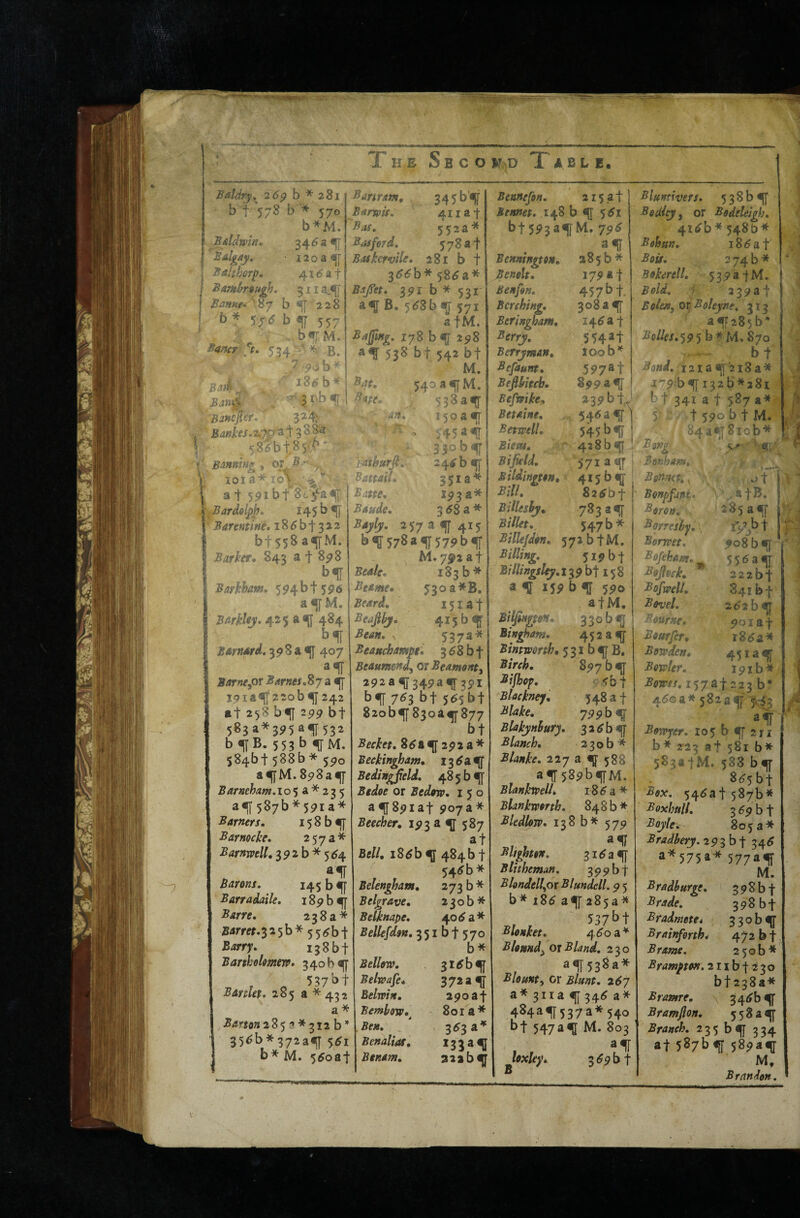 The Second Table.
Baldry, 269 b * 281
b † 578 b * 570
b * M.
Baldwin. 346 a ¶
Balgay. 120 a ¶
Balthorp. 416 a †
Bambrough. 311 a ¶
Banne. 87 b ¶ 228
b * 556 b ¶ 557
b ¶ M.
534 * B.
186 b *
Bancster. 324
Bankes. 270 a † 388
586 b † 85
Banning, or B
101 a * 10
a † 591 b † 80 a ¶
Bardolph. 145 b ¶
Barentine. 186 b † 322
b † 558 a ¶ M.
Barker. 843 a † 898
b ¶
Barkham. 594 b † 596
a ¶ M.
Barkley. 425 a ¶ 484
b ¶
Barnard. 398 a ¶ 407
a ¶
Barne, or Barnes. 87 a ¶
191 a ¶ 220 b ¶ 242
a † 258 b ¶ 299 b †
583 a * 395 a ¶ 532
b ¶ B. 553 b ¶ M.
584 b † 588 b * 590
a ¶ M. 898 a ¶
Barneham. 105 a * 235
a ¶ 587 b * 591 a *
Barners. 158 b ¶
Barnocke. 257 a *
Barnwell. 392 b * 564
a ¶
Barons. 145 b ¶
Barradaile. 189 b ¶
Barre. 238 a *
Barret. 325 b * 556 b †
Barry. 138 b †
Bartholomew. 340 b ¶
537 b †
Bartlet. 285 a * 432
a *
Barton 285 a * 312 b *
356 b * 372 a ¶ 561
b * M. 560 a †
Bartram. 345 b ¶
Barwis. 411 a †
Bas. 552 a *
Basford. 578 a †
Baskervile. 281 b †
366 b * 586 a *
Basset. 391 b * 531
a ¶ B. 568 b ¶ 571
a † M.
Bassing. 178 b ¶ 298
a ¶ 538 b † 542 b †
M.
Bat. 540 a ¶ M.
538 a ¶
150 a ¶
545 a ¶
330 b ¶
Bathurst. 246 b ¶
Battail. 351 a *
Batte. 193 a *
Baude. 368 a *
Bayly. 257 a ¶ 415
b ¶ 578 a ¶ 579 b ¶
M. 792 a †
Beale. 183 b *
Beame. 530 a * B.
Beard. 151 a †
Beaflby. 415 b ¶
Bean. 537 a *
Beauchampe. 368 b †
Beaumond, or Beamont,
292 a ¶ 349 a ¶ 391
b ¶ 763 b † 565 b †
820 b ¶ 830 a ¶ 877
b †
Becket. 86 a ¶ 292 a *
Beckingham. 136 a ¶
Bedingfield. 485 b ¶
Bedoe or Bedow. 150
a ¶ 891 a † 907 a *
Beecher. 193 a ¶ 587
a †
Bell. 186 b ¶ 484 b †
546 b *
Belengham. 273 b *
Belgrave. 230 b *
Belknape. 406 a *
Bellesdon. 351 b † 570
b *
Bellow. 316 b ¶
Belwafe. 372 a ¶
Belwin. 290 a †
Bembow. 801 a *
Ben. 363 a *
Benalias. 133 a ¶
Benam. 222 b ¶
Bennefon. 215 a †
Bennet. 148 b ¶ 561
b † 593 a ¶ M. 796
a ¶
Bennington. 285 b *
Benolt. 179 a †
Benson. 457 b †
Berching. 308 a ¶
Beringham. 146 a †
Berry. 554 a †
Berryman. 100 b *
Besaunt. 597 a †
Besbitch. 899 a ¶
Beswike. 239 b †
Betaine. 546 a ¶
Betwell. 545 b ¶
Biem. 428 b ¶
Bifield. 571 a ¶
Bildington. 415 b ¶
Bill. 826 b †
Billesby. 783 a ¶
Billet. 547 b *
Billesdon. 572 b † M.
Billing. 519 b †
Billingsley. 139 b † 158
a ¶ 159 b ¶ 590
a † M.
Bilsington. 330 b ¶
Bingham. 452 a ¶
Bintworth. 531 b ¶ B.
Birch. 897 b ¶
Bishop. 6 b †
Blackney. 548 a †
Blake. 799 b ¶
Blakynbury. 326 b ¶
Blanch. 230 b *
Blanke. 227 a ¶ 588
a ¶ 589 b ¶ M.
Blankwell. 186 a *
Blankworth. 848 b *
Bledlow. 138 b * 579
a ¶
Blighton. 316 a ¶
Blitheman. 399 b †
Blondell, or Blundell. 95
b * 186 a ¶ 285 a *
537 b †
Blonket. 460 a *
Blonnd, or Bland. 230
a ¶ 538 a *
Blount, or Blunt. 267
a * 311 a ¶ 346 a *
484 a ¶ 537 a * 540
b † 547 a ¶ M. 803
a ¶
loxley. 369 b †
B
Bluntivers. 538 b ¶
Bodley, or Bodeleigh.
416 b * 548 b *
Bohun. 186 a †
Bois. 274 b *
Bokerell. 539 a † M.
Bold. 239 a †
Bolen, or Boleyne. 313
a ¶ 285 b *
Bolles. 595 b * M. 870
b †
Bond. 121 a ¶ 218 a *
179 b ¶ 132 b * 281
b † 341 a † 587 a *
† 590 b † M.
84 a ¶ 810 b *
Bong
Bonham.
Bonnet.
Bonpfant. a † B.
Boron. 285 a ¶
Borresby. b †
Borwet. 908 b ¶
Boscham. 556 a ¶
Bostock. 222 b †
Boswell. 841 b †
Bovel. 262 b ¶
Bourne. 901 a †
Bourser. 186 a *
Bowden. 451 a ¶
Bowler. 191 b *
Bowes. 157 a † 223 b *
460 a * 582 a ¶ 563
a ¶
Bowyer. 105 b ¶ 211
b * 223 a † 581 b *
583 a † M. 588 b ¶
865 b †
Box. 546 a † 587 b *
Boxhull. 369 b †
Boyle. 805 a *
Bradbery. 293 b † 346
a * 575 a * 577 a ¶
M.
Bradburge. 398 b †
Brade. 398 b †
Bradmote. 330 b ¶
Brainforth. 472 b †
Brame. 250 b *
Brampton. 211 b † 230
b † 238 a *
Bramre. 346 b ¶
Bramston. 558 a ¶
Branch. 235 b ¶ 334
a † 587 b ¶ 589 a ¶
M.
Brandon.